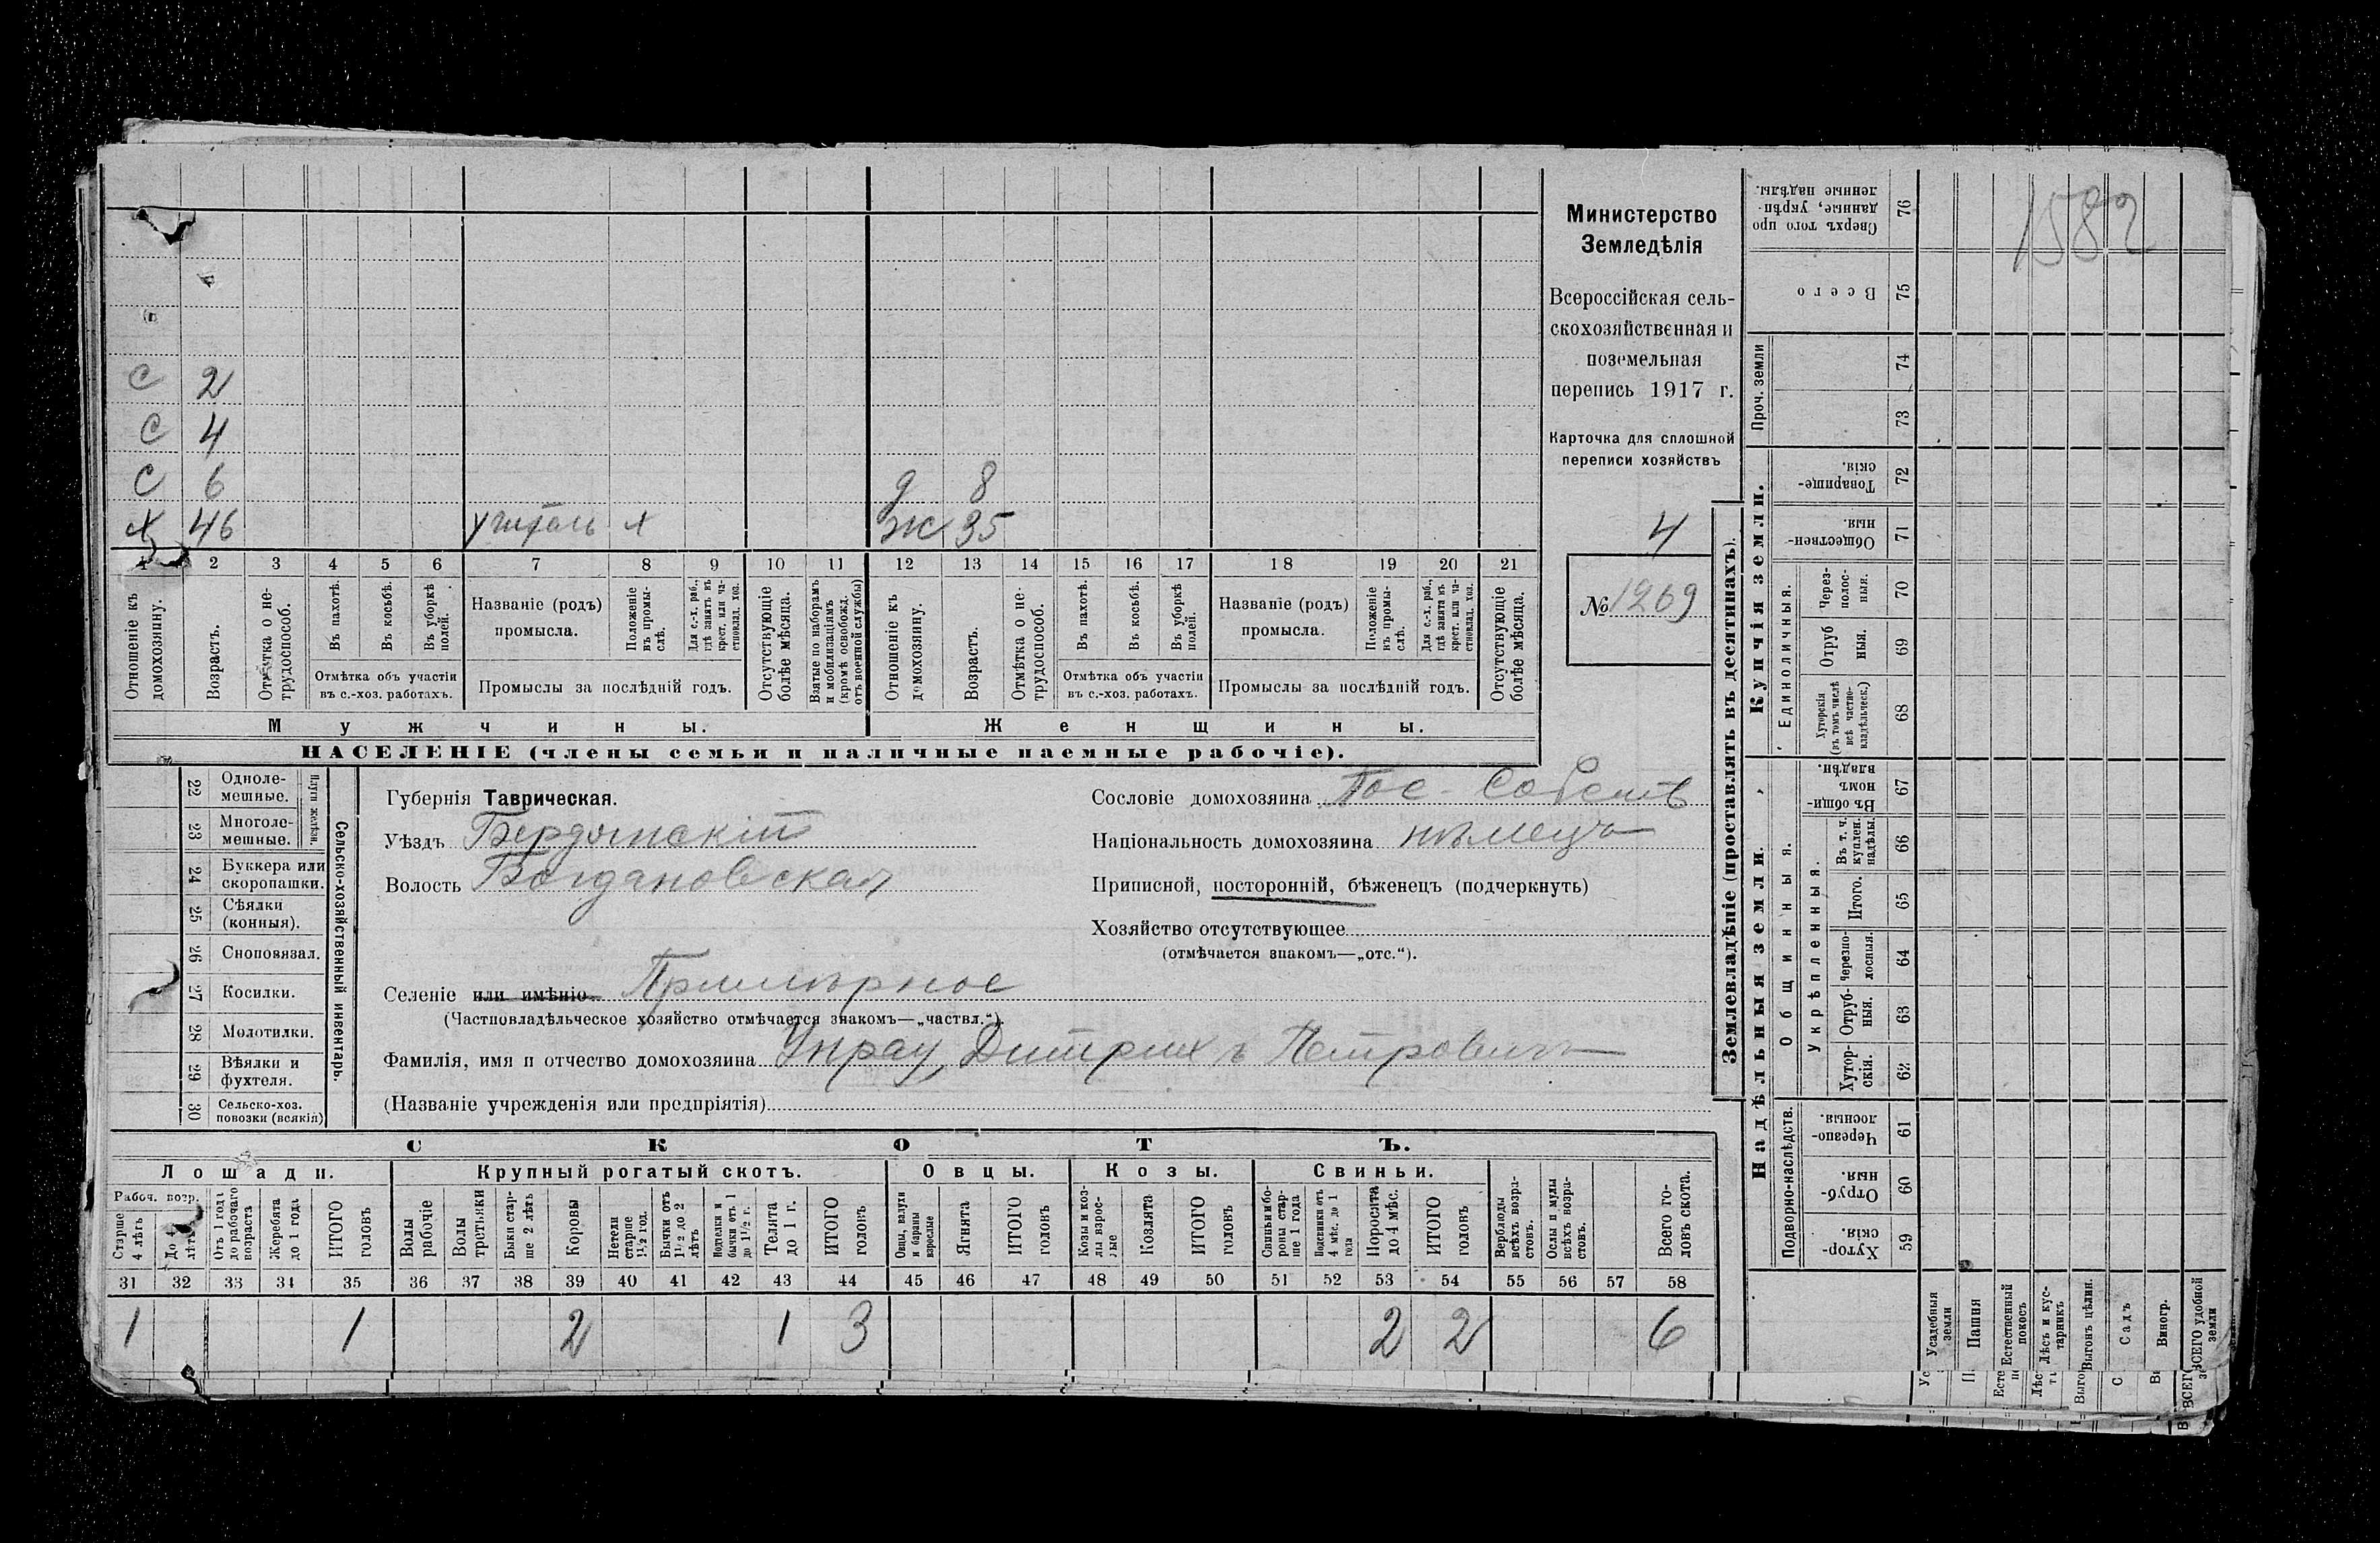 1582
Министерство
Земледѣлія
Всероссійская сель-
скохозяйственная и
поземельная
перепись 1917 г.
Карточка для сплошной
переписи хозяйствъ
4
№ 1269
С 2
С 4
С 6 д 8
Х 46 учитель х ж 35
1 2 3 4 5 6 7 8 9 10 11 12 13 14 15 16 17 18 19 20 21
Отношеніе къ домохозяину.
Возрастъ.
Отмѣтка о не-трудоспособ.
Въ пахотѣ.
Въ косьбѣ.
Въ уборкѣ полей.
Отмѣтка объ участіи
въ с.-хоз. работахъ.
Названіе (родъ)
промысла.
Положеніе въ промы-слѣ.
Для с.-х. раб., гдѣ занятъ въ крест. или ча-стновлад. хоз.
Промыслы за послѣдній годъ.
Отсутствующіе болѣе мѣсяца.
Взятые по наборамъ и мобилизаціямъ (кромѣ освобожд. отъ военной службы)
Отношеніе къ домохозяину.
Возрастъ.
Отмѣтка о не-трудоспособ.
Въ пахотѣ.
Въ косьбѣ.
Въ уборкѣ полей.
Отмѣтка объ участіи
въ с.-хоз. работахъ.
Названіе (родъ)
промысла.
Положеніе въ промы-слѣ.
Для с.-х. раб., гдѣ занята въ крест. или ча-стновлад. хоз.
Промыслы за послѣдній годъ.
Отсутствующіе болѣе мѣсяца.
Мужчины. Женщины.
НАСЕЛЕНІЕ (члены семьи и наличные наемные рабочіе).
22 Одноле-мешные.
23 Многоле-мешные.
Плуги желѣзн.
24 Буккера или скоропашки.
25 Сѣялки (конныя).
26 Сноповязал.
27 Косилки.
28 Молотилки.
29 Вѣялки и фухтеля.
30 Сельско-хоз. повозки (всякія)
Сельско-хозяйственный инвентарь.
Губернія Таврическая.
Уѣздъ Бердянскій
Волость Богдановская
Селеніе или имѣніе Примѣрное
(Частновладѣльческое хозяйство отмѣчается знакомъ—„частвл.“).
Фамилія, имя и отчество домохозяина Унрау, Дитрихъ Петровичъ
(Названіе учрежденія или предпріятія)
Сословіе домохозяина Пос. Собств
Національность домохозяина нѣмецъ
Приписной, посторонній, бѣженецъ (подчеркнуть)
Хозяйство отсутствующее
(отмѣчается знакомъ—„отс.“).
СКОТЪ.
Лошади. Крупный рогатый скотъ. Овцы. Козы. Свиньи.
Рабоч. возр.
Старше 4 лѣтъ
До 4 лѣтъ
Отъ 1 года до рабочаго возраста
Жеребята до 1 года
ИТОГО головъ
Волы рабочіе
Волы третьяки
Быки стар-ше 2 лѣтъ
Коровы
Нетели старше 1½ год.
Бычки отъ 1½ до 2 лѣтъ
Подтелки и бычки отъ 1 до 1½ г.
Телята до 1 г.
ИТОГО головъ
Овцы, валухи и бараны взрослые
Ягнята
ИТОГО головъ
Козы и коз-лы взрос-лые
Козлята
ИТОГО головъ
Свиньи и бо-ровы стар-ше 1 года
Подсвинки отъ 4 мѣс. до 1 года
Поросята до 4 мѣс.
ИТОГО головъ
Верблюды всѣхъ возра-стовъ.
Ослы и мулы всѣхъ возра-стовъ.
Всего го-ловъ скота.
31 32 33 34 35 36 37 38 39 40 41 42 43 44 45 46 47 48 49 50 51 52 53 54 55 56 57 58
1 1 2 1 3 2 2 6
Землевладѣніе (проставлять въ десятинахъ).
Надѣльныя земли.
Купчія земли.
Проч. земли
Подворно-наслѣдств.
Общинныя.
Укрѣпленныя.
Единоличныя.
Сверхъ того про данные, укрѣп-ленные надѣлы. 76
Всего 75
74
73
Товарище-скія. 72
Обществен-ныя. 71
Через-полос-ныя. 70
Отруб ныя. 69
Хуторскія (въ томъ числѣ всѣ частно-владѣльческ.) 68
Въ общи-номъ владѣн. 67
Въ т. ч. куплен. надѣлы. 66
Итого. 65
Черезпо-лосныя. 64
Отруб-ныя. 63
Хутор-скія. 62
Черезпо-лосныя. 61
Отруб-ныя. 60
Хутор-скія. 59
Усадебныя земли
Пашня
Естественный покосъ
Лѣсъ и кус-тарникъ
Выгонъ цѣлин.
Садъ
Виногр.
ВСЕГО удобной земли